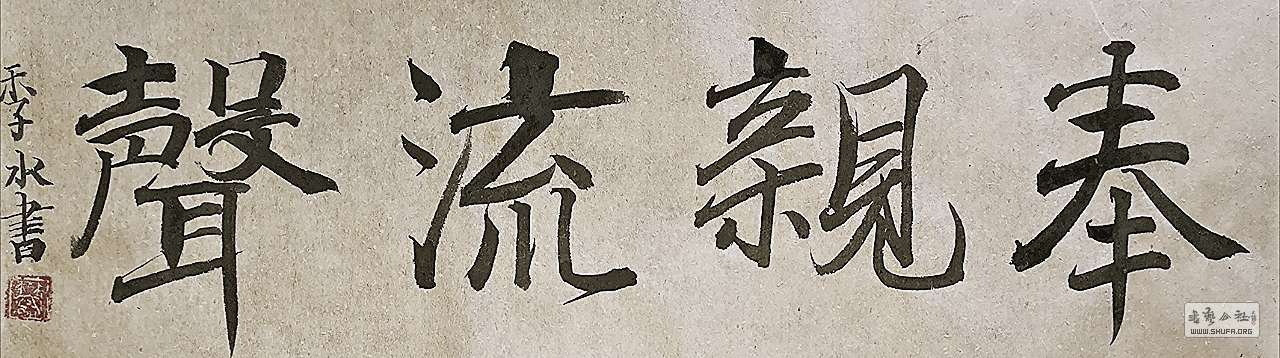 奉親流聲
季子水書
书艺公社
WWW.SHUFA.ORG